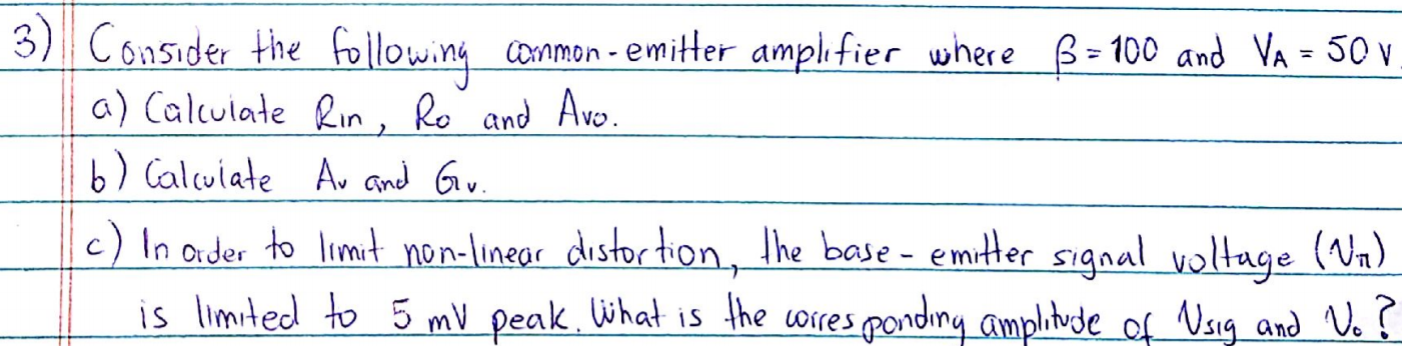 3) Consider the following common-emitter amplifier where β = 100 and VA = 50 V.
a) Calculate Rin, Ro and Avo.
b) Calculate Av and Gv.
c) In order to limit non-linear distortion, the base-emitter signal voltage (Vπ)
is limited to 5 mV peak. What is the corresponding amplitude of Vsig and Vo?